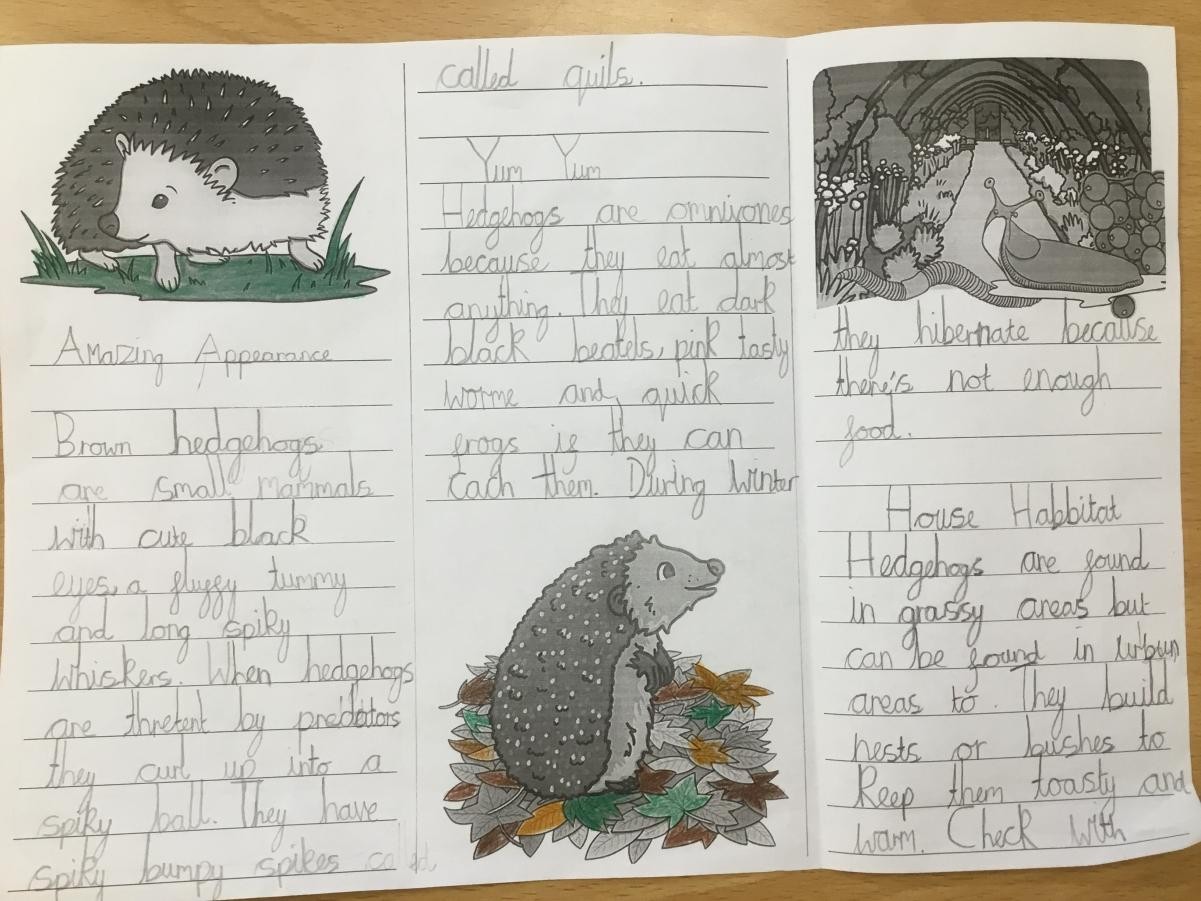 Amazing Appearance
Brown hedgehogs
are small mammals
with cute black
eyes, a fluffy tummy
and long spiky
whiskers. When hedgehogs
are thretent by predators
they curl up into a
spiky ball. They have
spiky bumpy spikes called
called quils.
Yum Yum
Hedgehogs are omnivores
because they eat almost
anything. They eat dark
black beatels, pink tasty
worme and, quick
frogs if they can
cach them. During winter
they hibernate because
there's not enough
food.
House Habbitat
Hedgehogs are found
in grassy areas but
can be found in urbun
areas to. They build
nests or bushes to
Keep them toasty and
warm. Check with